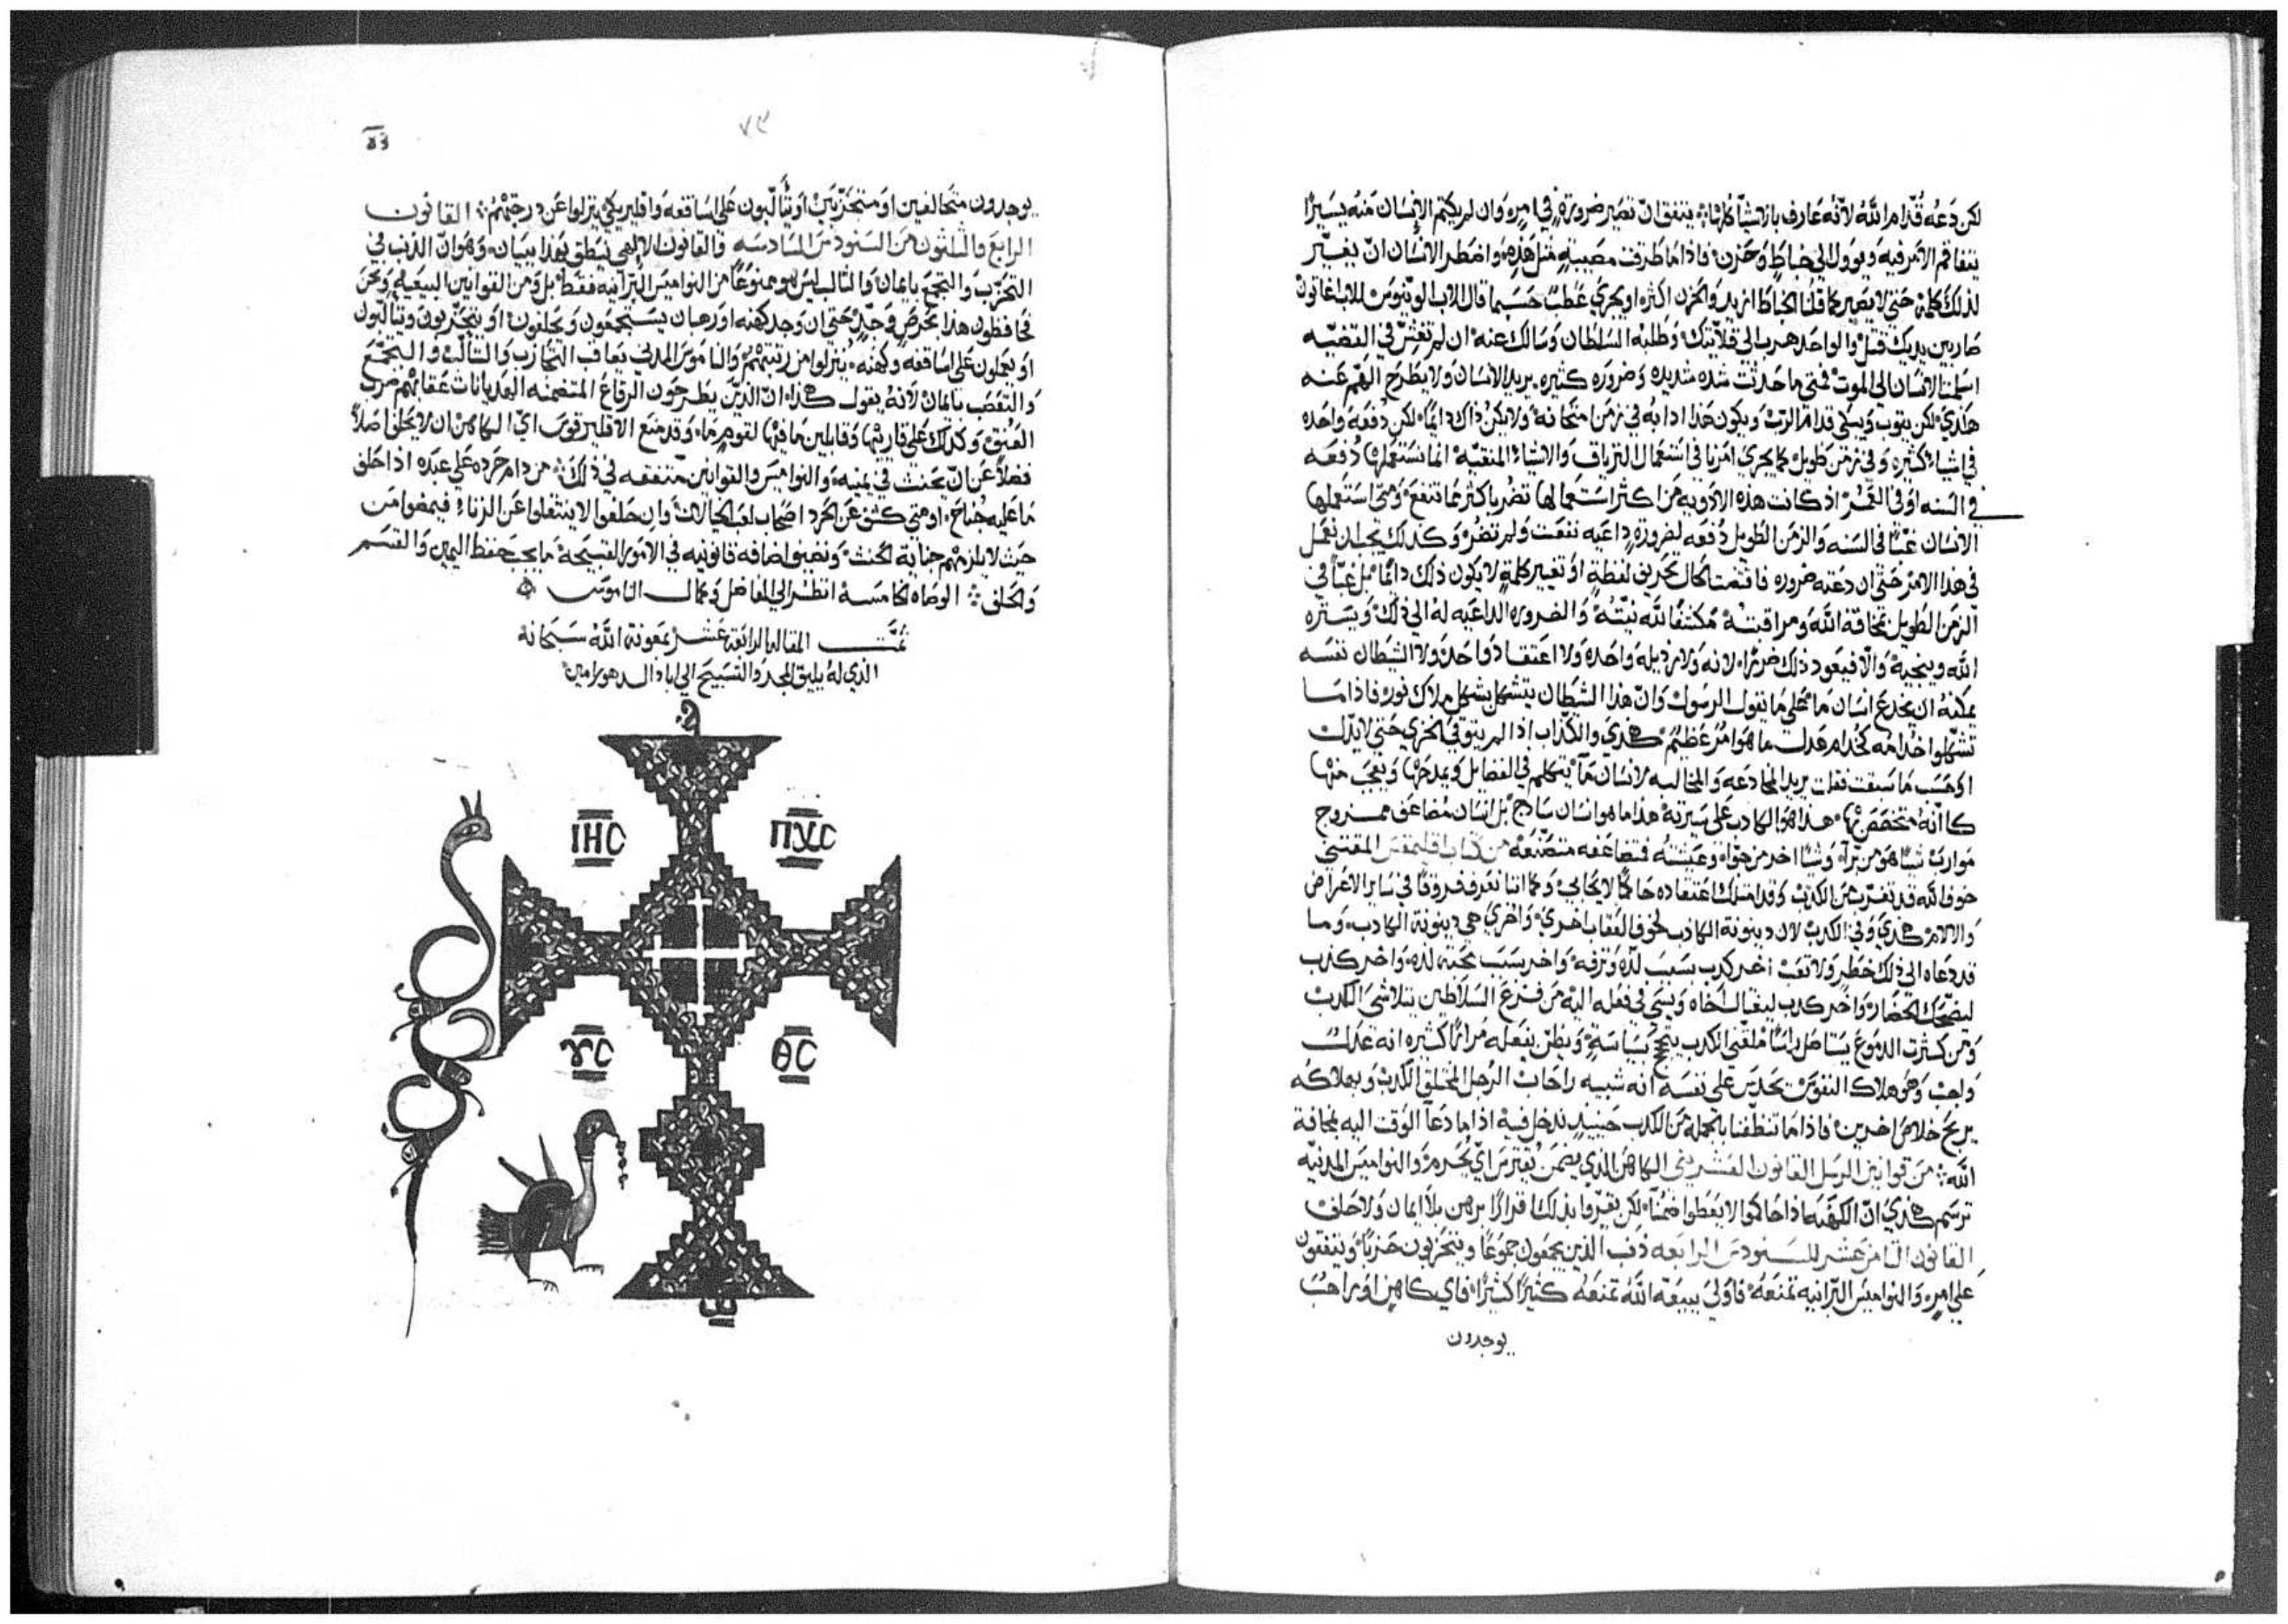 لكن دعه قدام الله لانه عارف بالاشيا كلها يتفق ان تصير ضرورة في امر وان لم يكتم الانسان منه يسيرًا
يتفاقم الامر فيه ويوول الى خباط وحزن فاذا ما طرقت مصيبه مثل هذه واضطر الانسان ان يغير
لذلك كلمة حتى لا يصير كما قلنا الخباط ازيد والحزن اكثر او يجري عطب حسبما قال الاب الونيوس للاب اغاتون
صار بين يديك قتل والواحد هرب الى قلايتك وطلبه السلطان وسالك عنه ان لم تغش في القضيه
اسلمت الانسان الى الموت فمتى ما حدثت شده شديده وضروره كثيره يريد الانسان ولا يطرح الهم عنه
هكذي لكن يتوب ويبكي قدام الرب ويكون هذا ادا به في زمن متحانه ولا يكن ذاك دايمًا لكن دفعه واحده
في اشياء كثيره وفي زمن طويل كما يجري امرنا في استعمال الترياق والاشياء المنقيه انما نستعملها دفعه
في السنه او في العمر اذ كانت هذه الادويه من اكثر استعمالها تضر باكثر مما تنفع ومتى استعملها
الانسان غبًا في السنه والزمن الطويل دفعه لضرورة داعيه نفعت ولم تضر وكذلك يجب ان نعمل
في هذا الامر حتى ان دعته ضروره فاقتمت كال تحريف لفظة او تغيير كلمة لا يكون ذلك دايمًا بل غبًا في
الزمن الطويل بمخافة الله ومراقبته مكتفا لله نيته والضروره الداعيه له الى ذلك ويستره
الله وينجيه والا فيعود ذلك ضررًا لانه ولا رذيله واحده ولا اعتقاد واحد ولا الشيطان نفسه
يمكنه ان يخدع انسان ما على ما يقول الرسول وان هذا الشيطان يتشكل بشكل ملاك نور فاذا ما
تشبهوا خدامه كخدام عدل ما هو امر عظيم هكذي والكذاب اذا لم يتوق في الخزي حتى لا يذلك
او حسب ما سبقت فقلت يريد المخادعه والمخالبه لانسان ما يتكلم في الفضايل ويمدحها ويعجب منها
كانه متخصص بها هذا هو الكادب على سيرته هذا ما هو انسان سادج بل انسان مضاعف ممزوج
موارب شيًا هو من برا وشيًا اخر من جواه وعيشته فتضاعفه متصنعه من كتاب اقليمقس المقتني
خوف الله قد تغرب من الكذب وقد امتلك اعتقاده حاكمًا لا يحابي وكما اننا نعرف فروقًا في ساير الاعراض
والالام هكذي وفي الكذب لان دينونة الكادب لخوف العقاب اخرى واخرى هي دينونة الكادب وما
قد دعاه الى ذلك خطر ولا تعب اخر كذب بسبب لذه وترفه واخر بسبب محبته لذه واخر كذب
ليضحك الحضار واخر كذب ليغتال اخاه ويسي في فعله اليه من فزع السلاطين يتلاشى الكذب
ومن كثرت الدموع يستاصل راسًا ملقي الكذب يحتج بسياسة ويظن بفعله مرارًا كثيره انه عدل
واجب وهو هلاك النفوس يحدس على نفسه انه شبيه راحاب الرجل المختلق الكذب وبهلاكه
يربح خلاص اخرين فاذا ما تنظفنا بالجملة من الكذب حينيذ ندخل فيه اذا ما دعا الوقت اليه بمخافة
الله من قوانين الرسل القانون العشرين الكاهن الذي يضمن يقترس اي يحرم والنواميس المدنيه
ترسم هكذي ان الكهنه اذا حاكموا لا يعطوا ضمنًا لكن يقروا بذلك اقرارًا برهن بلا ايمان ولا حلف
القانون الثامن عشر للسنودس الرابعه ذنب الذين يجمعون جموعًا ويتحزبون حزبًا ويتفقون
على امر والنواميس البرانيه تمنعه فاولى بيعة الله تمنعه كثيرًا كثيرًا فاي كاهن او راهب
يوجدون
٧٣
يوجدون متحالفين او متحزبين او يتالبون على اساقفه واقليريكي ينزلوا عن درجتهم القانون
الرابع والثلثون من السنودس السادسه والقانون الالهي ينطق بهذا ببيان وهو ان الذنب في
التحزب والتجمع بايمان والتالب ليس هو ممنوعًا من النواميس البرانيه فقط بل ومن القوانين البيعيه ونحن
نحافظون هذا بحرص وجد حتى ان وجد كهنه او رهبان يستجمعون ويحلفون او يتحزبون ويتالبون
او يعملون على اساقفه وكهنه ينزلوا من رتبتهم والناموس المدني يعاقب التحازب والتالب والتجمع
والتعصب بايمان لانه يقول هكذا ان الذين يطرحون الرقاع المتضمنه البعديانات عقابهم ضرب
العنق وكذلك على قاريها وقابلين ما فيها لقوم ما وقد منع الاقليرقوس اي الكاهن ان لا يحلف اصلًا
فضلًا عن ان يحنث في يمينه والنواميس والقوانين متفقه في ذلك من دام حرده على عبده اذا حلف
ما عليه جناح او متى كشف عن الحرد اصحاب لعب الخيالات وان حلفوا لا ينتقلوا عن الزناء فيمضوا من
حيث لا يلزمهم جناية الحنث ونضيف اضافه قانونيه في الامور القبيحة ما يجب حفظ اليمين والقسم
والحلف الوصاه الخامسة انظر الى المفاضل وكمال الناموس
تمت المقاله الرابعة عشر بمعونة الله سبحانه
الذي له يليق المجد والتسبيح الى اباد الدهور امين
ΙΗС ΠΧС
ΥС ΘС